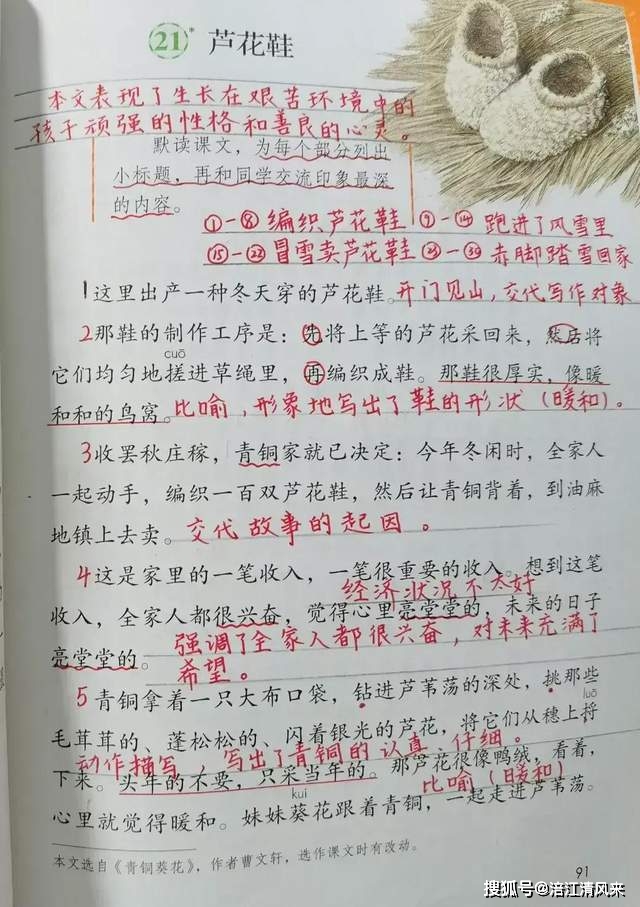 21* 芦花鞋
本文表现了生长在艰苦环境中的
孩子顽强的性格和善良的心灵。
默读课文，为每个部分列出
小标题，再和同学交流印象最深
的内容。
①-⑧ 编织芦花鞋 ⑨-⑭ 跑进了风雪里
⑮-㉒ 冒雪卖芦花鞋 ㉓-㉝ 赤脚踏雪回家
1这里出产一种冬天穿的芦花鞋。开门见山，交代写作对象
2那鞋的制作工序是：先将上等的芦花采回来，然后将
cuō
它们均匀地搓进草绳里，再编织成鞋。那鞋很厚实，像暖
和和的鸟窝。比喻，形象地写出了鞋的形状（暖和）。
3收罢秋庄稼，青铜家就已决定：今年冬闲时，全家人
一起动手，编织一百双芦花鞋，然后让青铜背着，到油麻
地镇上去卖。交代故事的起因。
4这是家里的一笔收入，一笔很重要的收入。想到这笔
经济状况不太好
收入，全家人都很兴奋，觉得心里亮堂堂的，未来的日子
强调了全家人都很兴奋，对未来充满了
亮堂堂的。
希望。
5青铜拿着一只大布口袋，钻进芦苇荡的深处，挑那些
luō
毛茸茸的、蓬松松的、闪着银光的芦花，将它们从穗上捋
动作描写，写出了青铜的认真、仔细。
下来。头年的不要，只采当年的。那芦花很像鸭绒，看着，
比喻（暖和）
kuí
心里就觉得暖和。妹妹葵花跟着青铜，一起走进芦苇荡。
本文选自《青铜葵花》，作者曹文轩，选作课文时有改动。
91
搜狐号@涪江清风来